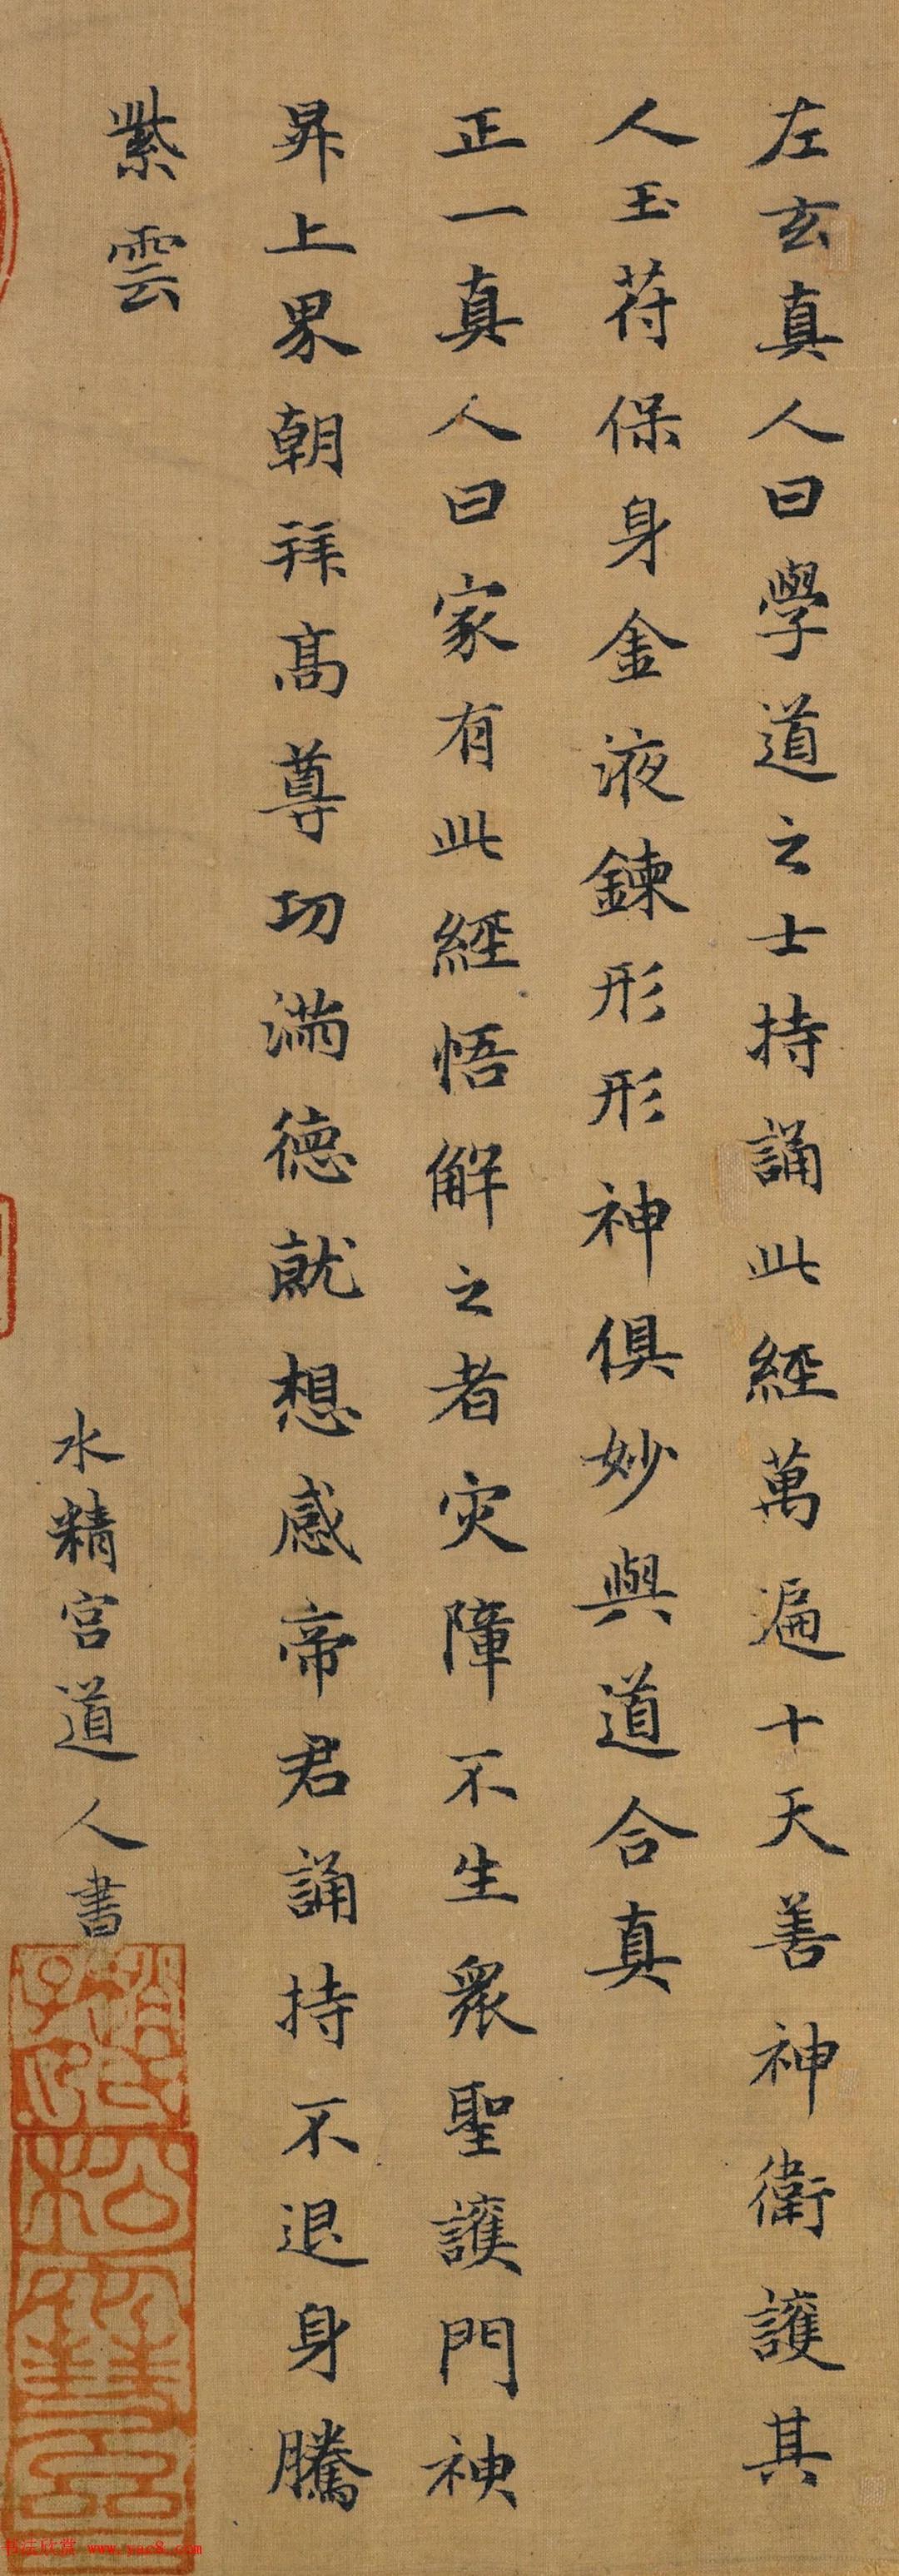 左玄真人曰學道之士持誦此經萬遍十天善神衛護其
人玉苻保身金液鍊形形神俱妙與道合真
正一真人曰家有此經悟解之者灾障不生衆聖護門神
昇上界朝拜高尊功滿德就想感帝君誦持不退身騰
紫雲
水精宮道人書
趙氏子昂
松雪齋
书法欣赏 www.yac8.com